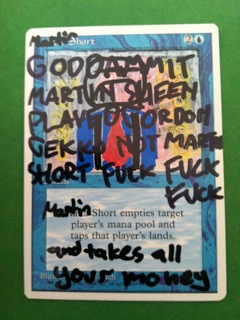 Martin Short 2
GODDAMMIT
MARTIN SHEEN
PLAYED GORDON
GEKKO NOT MARTIN
SHORT FUCK FUCK
FUCK
Martin Short empties target
player's mana pool and
taps that player's lands.
and takes all
your money